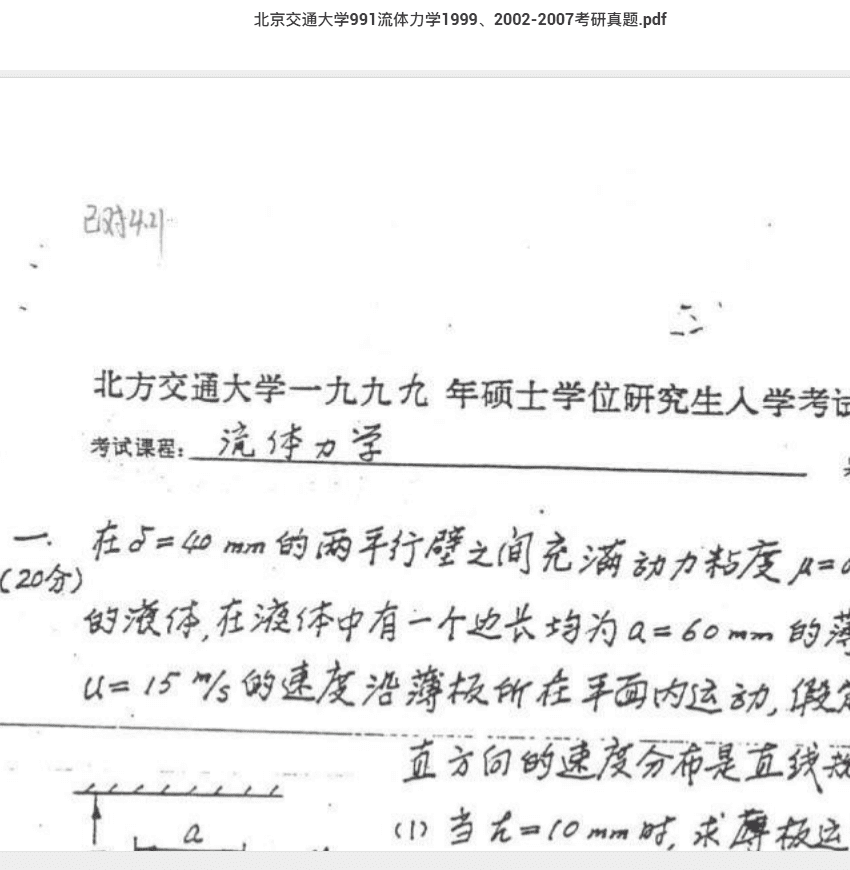 北京交通大学991流体力学1999、2002-2007考研真题.pdf
已对4.21
北方交通大学一九九九 年硕士学位研究生入学考试
考试课程: 流体力学
一. 在δ=40 mm的两平行壁之间充满动力粘度 μ=0
(20分)
的液体,在液体中有一个边长均为a=60mm的薄
u=15 m/s的速度沿薄板所在平面内运动,假定
直方向的速度分布是直线规
a
(1) 当h=10mm时,求薄板运